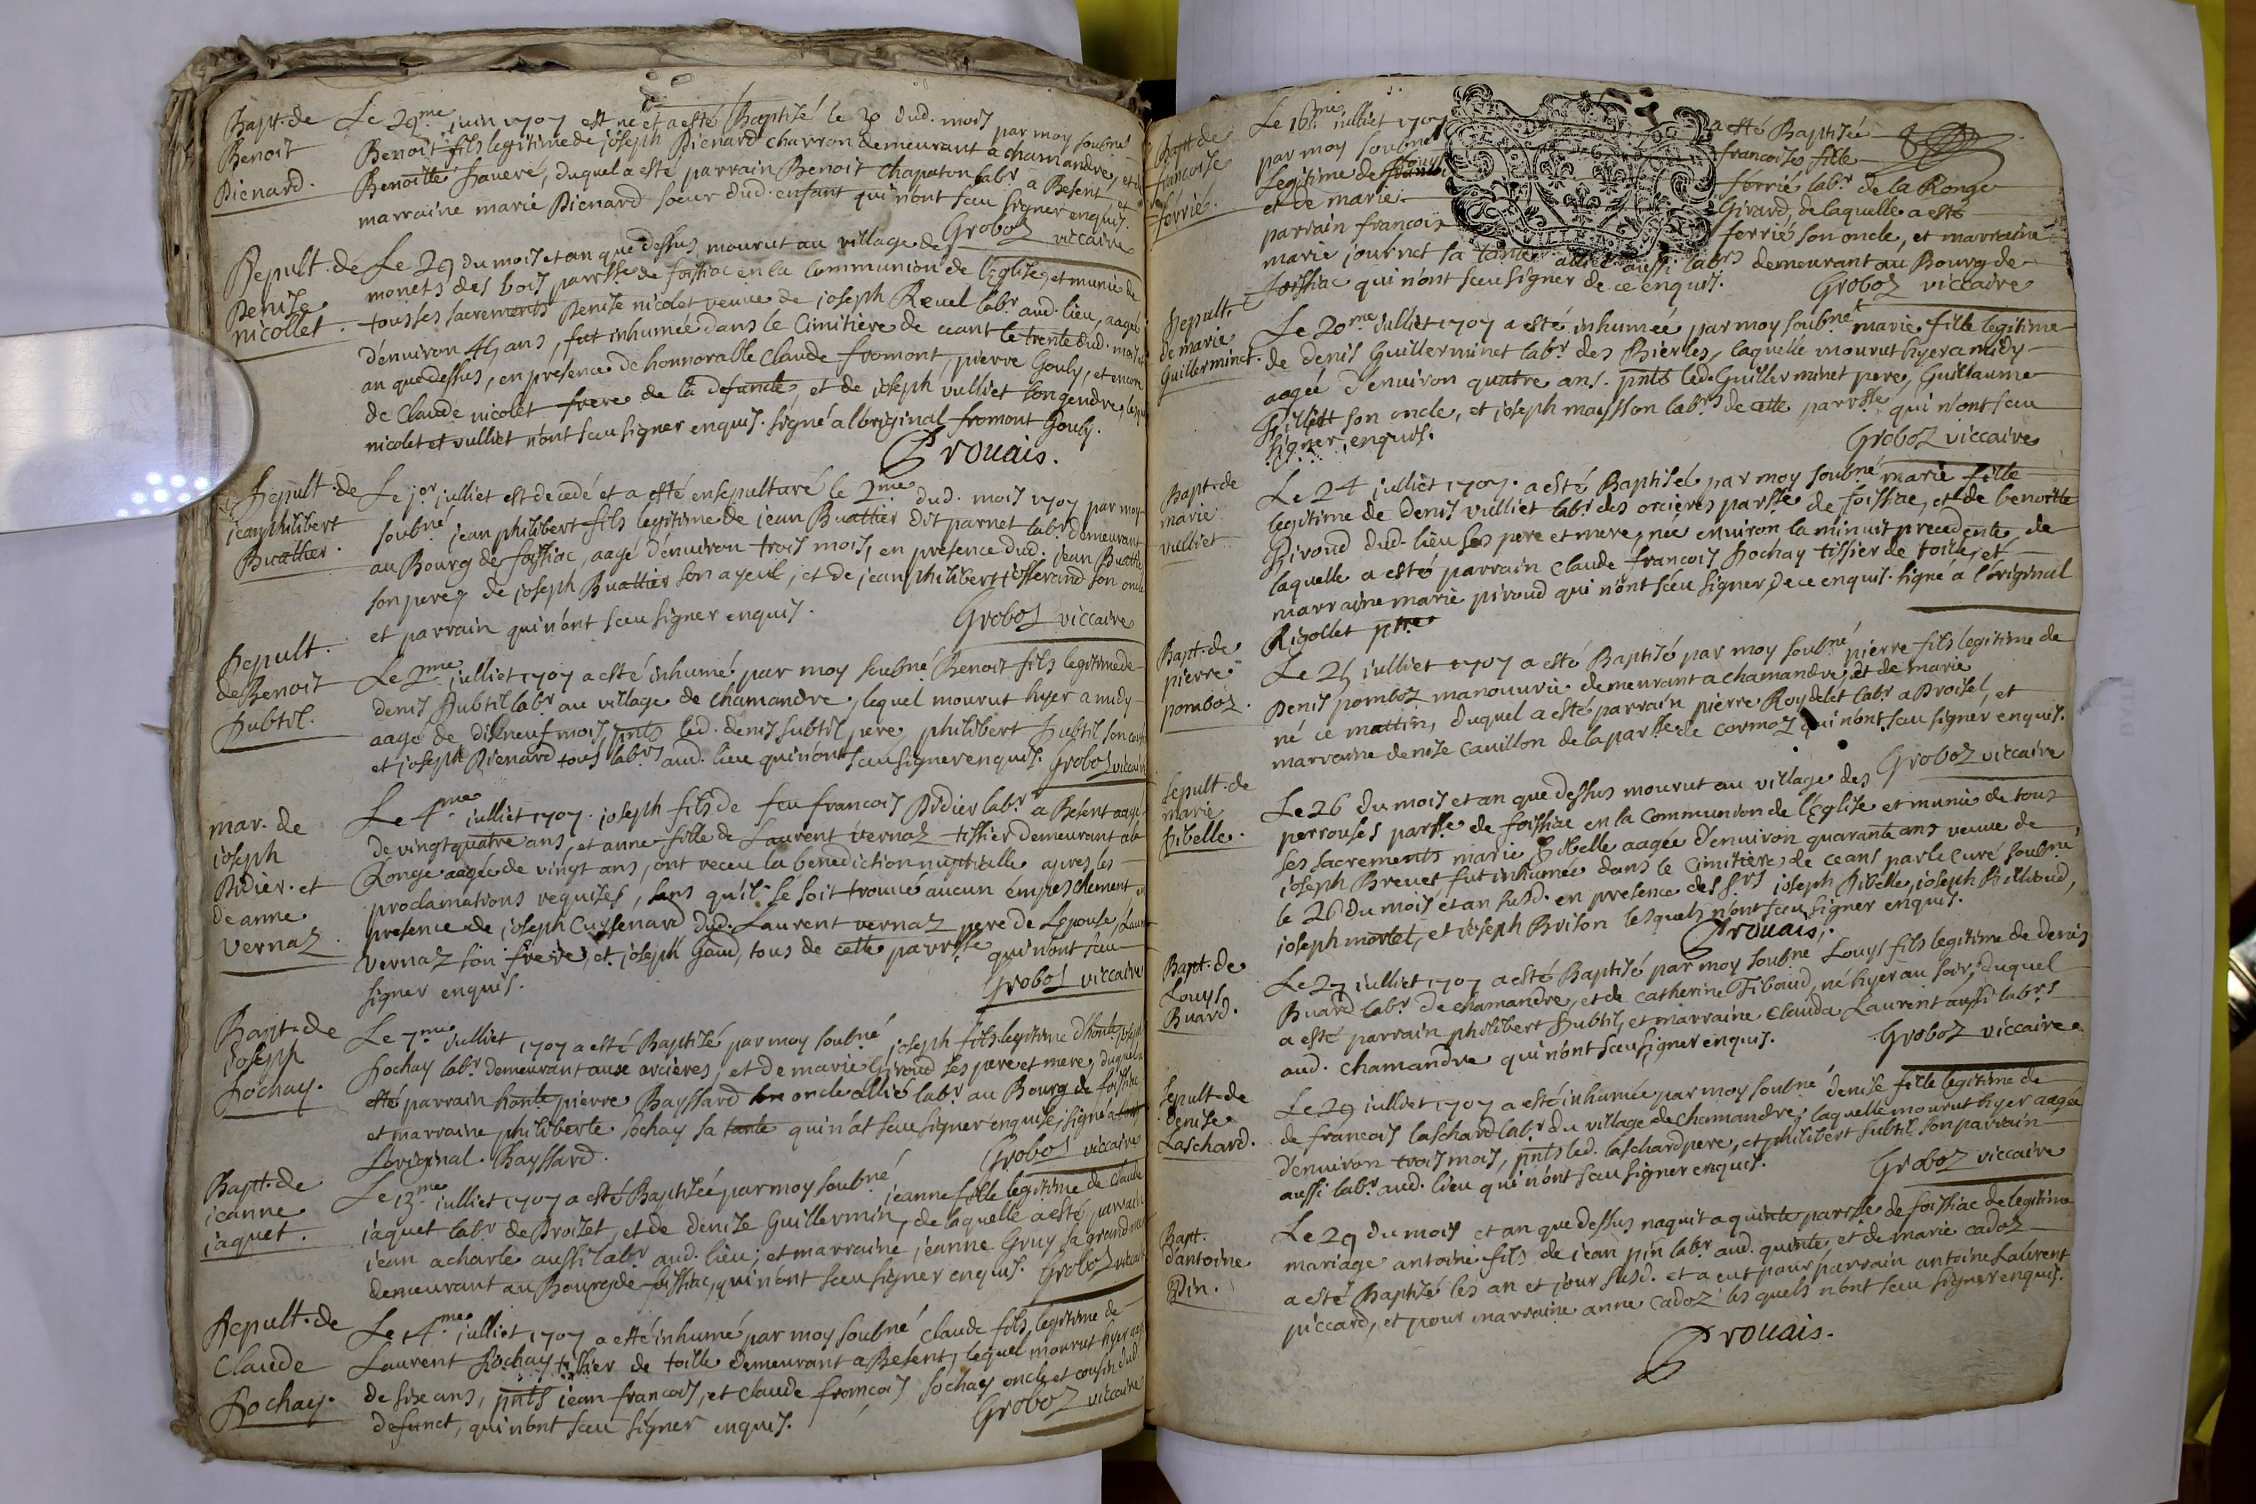 Bapt. de
Benoit
Pienard.
Le 29me juin 1707 est né et a esté Baptisé le dud. mois par moy soubné
Benoit fils legitime de joseph Pienard charron demeurant a chamandre, et
Benoitte Faveré, duquel a esté parrain Benoit Chapaton labr a Besent, et
marraine marie Pienard soeur dud. enfant qui n'ont sceu signer enquis.
Groboz viccaire
Sepult. de
Denise
nicollet.
Le 29 du mois et an que dessus mourut au village de
monets des bois parsse de foissiac en la Communion de l'Eglise, et munie de
tous ses sacrements Denise nicolet veuve de joseph Revel labr aud. lieu, aagée
d'environ 45 ans, fut inhumée dans le Cimitière de ceant le trente dud. mois et
an que dessus, en presence de honnorable Claude fromont, pierre Gouly, et encore
de Claude nicolet frere de la defuncte, et de joseph vulliet son gendre,
nicolet et vulliet n'ont sceu signer enquis. signé a l'original fromont Gouly.
Prouais.
Sepult. de
jean philibert
Buathier.
Le jor julliet est decedé et a esté ensepulturé le 2me dud. mois 1707 par moy
soubné jean philibert fils legitime de jean Buattier dit parnet labr demeurant
au Bourg de foissiac, aagé d'environ trois mois, en presence dud. jean Buattier
son pere, de joseph Buattier son ayeul, et de jean philibert josserand son oncle
et parrain qui n'ont sceu signer enquis.
Groboz viccaire
Sepult.
de Benoit
Subtil.
Le 2me julliet 1707 a esté inhumé par moy soubné Benoit fils legitime de
denis Subtil labr au village de chamandre, lequel mourut hyer a midy
aagé de dixneuf mois, pnts led. denis subtil pere, philibert Subtil son
et joseph Pienard tous labrs aud. lieu qui n'ont sceu signer enquis. Groboz viccaire
mar. de
joseph
Didier. et
de anne
Vernaz.
Le 4me julliet 1707. joseph fils de feu francois Didier labr a Besent aagé
de vingt quatre ans, et anne fille de Laurent vernaz tissier demeurant a la
Ronge aagée de vingt ans, ont receu la benediction nuptialle apres les
proclamations requises, sans qu'il se soit trouvé aucun empeschement
presence de joseph Cussenard dud. Laurent vernaz pere de Lepouse,
vernaz son frere, et joseph Gaud, tous de cette parrsse qui n'ont sceu
signer enquis.
Groboz viccaire
Bapt. de
joseph
Sochay.
Le 7me julliet 1707 a esté Baptisé par moy soubné joseph fils legitime d'honte joseph
Sochay labr demeurant aux orcières, et de marie Giroud ses pere et mere, duquel a
esté parrain honte pierre Bayssard son oncle allié labr au Bourg de foissiac
et marraine philiberte Sochay sa tante qui n'at sceu signer enquise, signé a
L'original. Bayssard.
Groboz viccaire
Bapt. de
jeanne
jaquet.
Le 13me julliet 1707 a esté Baptisée par moy soubné jeanne fille legitime de Claude
jaquet labr de Broizet, et de denise Guillermin, de laquelle a esté parrain
jean acharle aussi labr aud. lieu; et marraine jeanne Gruy sa grand mere
demeurant au Bourg de foissiac, qui n'ont sceu signer enquis. Groboz viccaire
Sepult. de
Claude
Sochay.
Le 14me julliet 1707 a esté inhumé par moy soubné Claude fils legitime de
Laurent Sochay tissier de toille demeurant a Besent, lequel mourut hyer aagé
de six ans, pnts jean francois, et claude francois Sochay oncle et cousin dud.
defunct, qui n'ont sceu signer enquis.
Groboz viccaire
Bapt de
francoise
ferrié.
Le 16me julliet 1707 a esté Baptisée
par moy soubné francoise fille
Legitime de ferrié labr de la Ronge
et de marie Girard, de laquelle a esté
parrain francois ferrié son oncle, et marraine
marie journet sa tante alliée aussi labrs demeurant au Bourg de
foissiac qui n'ont sceu signer de ce enquis.
Groboz viccaire
Sepult.
de marie
Guillerminet.
Le 20me julliet 1707 a esté inhumée par moy soubné marie fille legitime
de denis Guillerminet labr des Bierles, laquelle mourut hyer a midy
aagée d'environ quatre ans. pnts led. Guillerminet pere, Guillaume
Pilliet son oncle, et joseph maisson labrs de cette parrsse qui n'ont sceu
signer, enquis.
Groboz viccaire
Bapt. de
marie
vulliet
Le 24 julliet 1707. a esté Baptisée par moy soubné marie fille
legitime de denis vulliet labr des orcières parsse de foissiac, et de benoitte
Piroud dud. lieu ses pere et mere, née environ la minuit precedente, de
laquelle a esté parrain claude francois Sochay tissier de toile, et
marraine marie piroud qui n'ont sceu signer de ce enquis. signé a l'original
Rigollet ptre
Bapt. de
pierre
pomboz.
Le 25 julliet 1707 a esté Baptisé par moy soubné pierre fils legitime de
Denis pomboz manouvrie demeurant a chamandre, et de marie
né ce mattin, duquel a esté parrain pierre Roydelet labr a Broisel, et
marraine denise Cavillon de la parsse de cormoz qui n'ont sceu signer enquis.
Groboz viccaire
Sepult. de
marie
Sibelle.
Le 26 du mois et an que dessus mourut au village des
perrouses parsse de foissiac en la Communion de l'Eglise et munie de tous
ses sacrements marie Sibelle aagée d'environ quarante ans veuve de
joseph Brevet fut inhumée dans le Cimitière de ceans par le Curé soubné
le 26 du mois et an susd. en presence des srs joseph Sibelle, joseph Pillioud,
joseph morlet, et joseph Brison lesquels n'ont sceu signer enquis.
Prouais.
Bapt. de
Louys
Buard.
Le 27 julliet 1707 a esté Baptisé par moy soubné Louys fils legitime de denis
Buard labr de chamandre, et de Catherine Tibaud, né hyer au soir, duquel
a esté parrain philibert Subtil, et marraine Clauda Laurent aussi labrs
aud. chamandre qui n'ont sceu signer enquis.
Groboz viccaire
Sepult. de
denise
Laschard.
Le 29 julliet 1707 a esté inhumée par moy soubné denise fille legitime de
de francois laschard labr du village de chamandre, laquelle mourut hyer aagée
d'environ trois mois, pnts led. laschard pere, et philibert subtil son parrain
aussi labr aud. lieu qui n'ont sceu signer enquis.
Groboz viccaire
Bapt.
d'antoine
Pin.
Le 29 du mois et an que dessus naquit a quinte parsse de foissiac de legitime
mariage antoine fils de jean pin labr aud. quinte et de marie cadoz
a esté Baptisé les an et jour susd. et a eut pour parrain antoine Laurent
piccard, et pour marraine anne Cadoz lesquels n'ont sceu signer enquis.
Prouais.